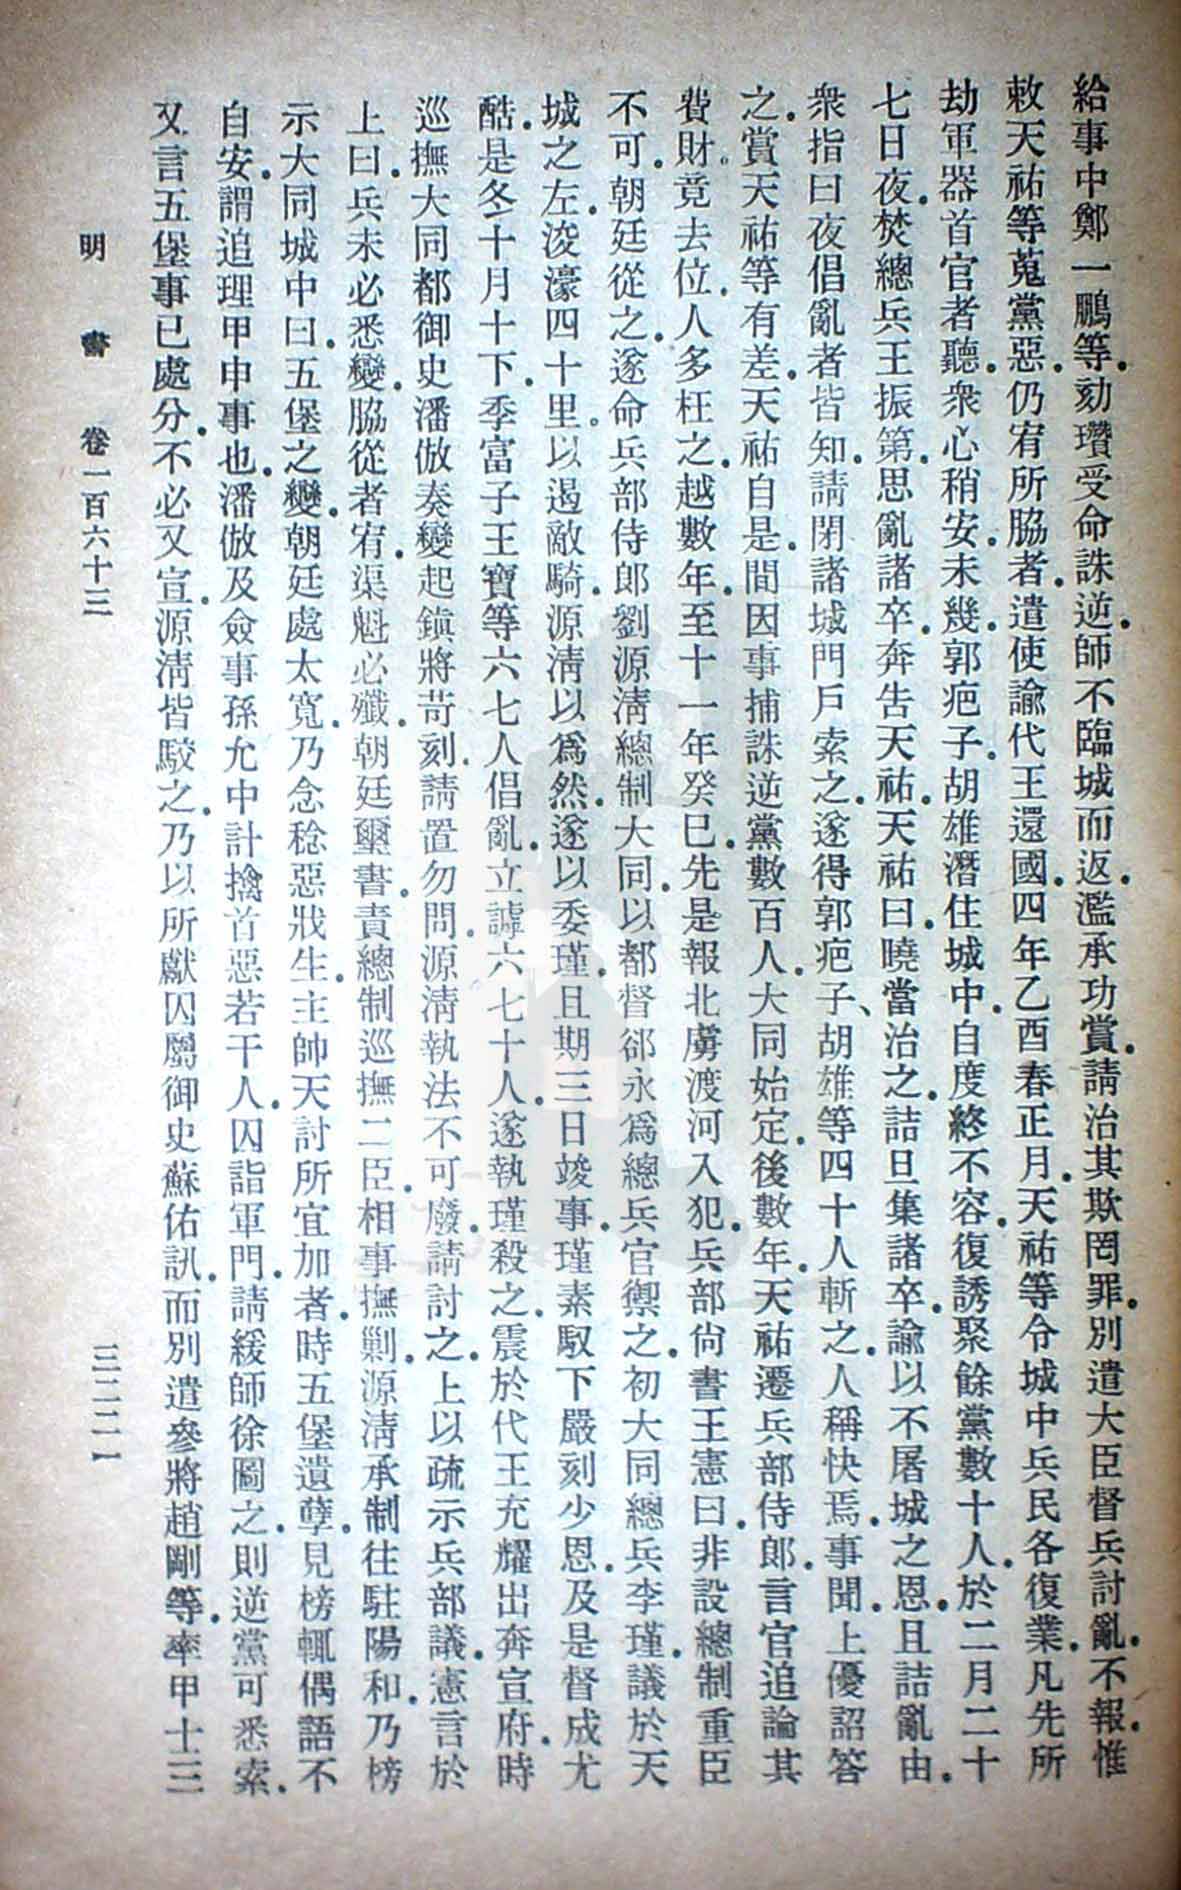 給事中鄭一鵬等劾瓚受命誅逆師不臨城而返濫承功賞請治其欺罔罪別遣大臣督兵討亂不報惟
敕天祐等蒐黨惡仍宥所脇者遣使諭代王還國四年乙酉春正月天祐等令城中兵民各復業凡先所
劫軍器首官者聽衆心稍安未幾郭疤子胡雄潛住城中自度終不容復誘聚餘黨數十人於二月二十
七日夜焚總兵王振第思亂諸卒奔告天祐天祐曰曉當治之詰旦集諸卒諭以不屠城之恩且詰亂由
衆指曰夜倡亂者皆知請閉諸城門戶索之遂得郭疤子、胡雄等四十人斬之人稱快焉事聞上優詔答
之賞天祐等有差天祐自是間因事捕誅逆黨數百人大同始定後數年天祐遷兵部侍郎言官追論其
費財竟去位人多枉之越數年至十一年癸巳先是報北虜渡河入犯兵部尙書王憲曰非設總制重臣
不可朝廷從之遂命兵部侍郎劉源淸總制大同以都督郤永爲總兵官禦之初大同總兵李瑾議於天
城之左浚濠四十里以遏敵騎源淸以爲然遂以委瑾且期三日竣事瑾素馭下嚴刻少恩及是督成尤
酷是冬十月十下季富子王寶等六七人倡亂立謼六七十人遂執瑾殺之震於代王充耀出奔宣府時
巡撫大同都御史潘倣奏變起鎭將苛刻請置勿問源淸執法不可廢請討之上以疏示兵部議憲言於
上曰兵未必悉變脇從者宥渠魁必殲朝廷璽書責總制巡撫二臣相事撫剿源淸承制往駐陽和乃榜
示大同城中曰五堡之變朝廷處太寬乃念稔惡戕生主帥天討所宜加者時五堡遺孽見榜輒偶語不
自安謂追理甲申事也潘倣及僉事孫允中計擒首惡若干人囚詣軍門請緩師徐圖之則逆黨可悉索
又言五堡事已處分不必又宣源淸皆駮之乃以所獻囚屬御史蘇佑訊而別遣參將趙剛等率甲士三
明書 卷一百六十三 三二二一